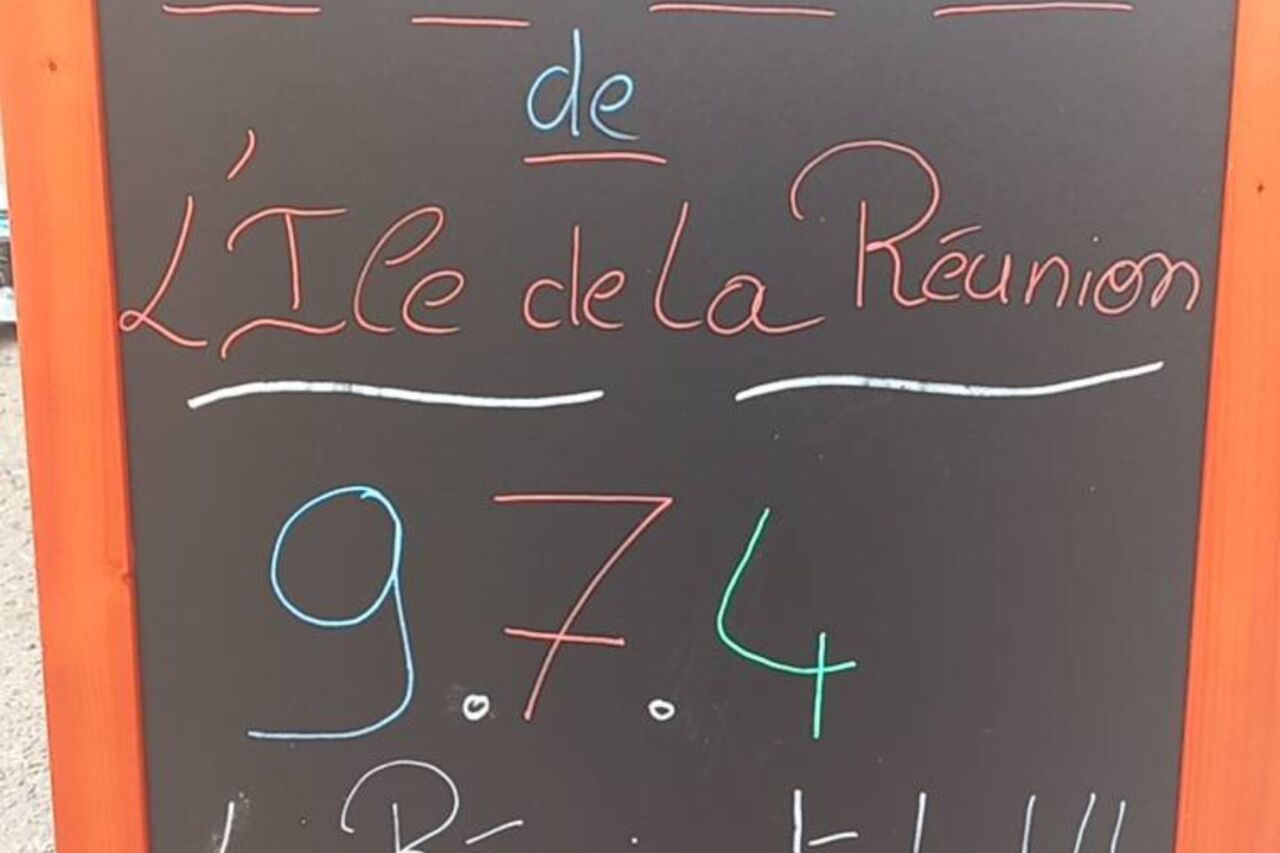 de
L'Ile de la Réunion
9.7.4